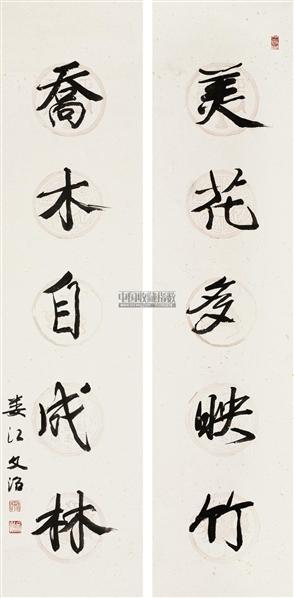 美花多映竹
喬木自成林
婁江文治
中国收藏指数